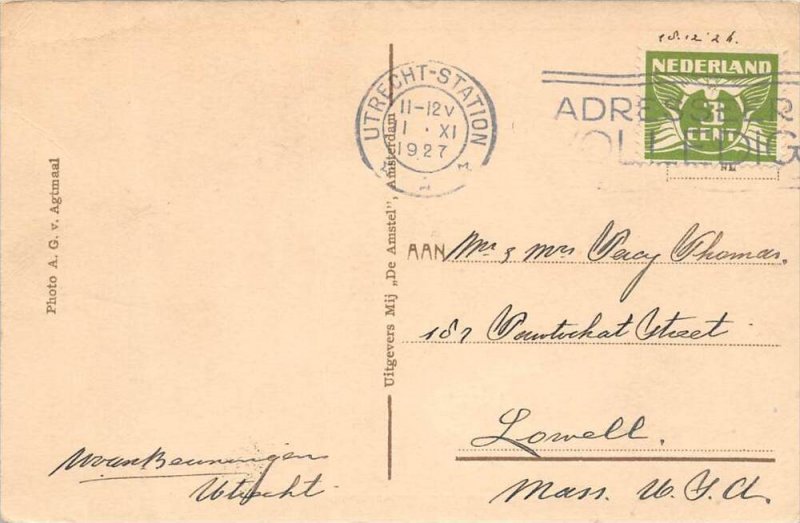 18.12.26.
NEDERLAND
3
CENT
UTRECHT-STATION
11-12V
1 · XI
1927
1
ADRESSEER
VOLLEDIG
Photo A. G. v. Agtmaal
Uitgevers Mij „De Amstel”, Amsterdam
AAN Mr & Mrs Percy Thomas.
187 Pawtucket Street
Lowell.
Mass. U.S.A.
W van Beuningen
Utrecht.